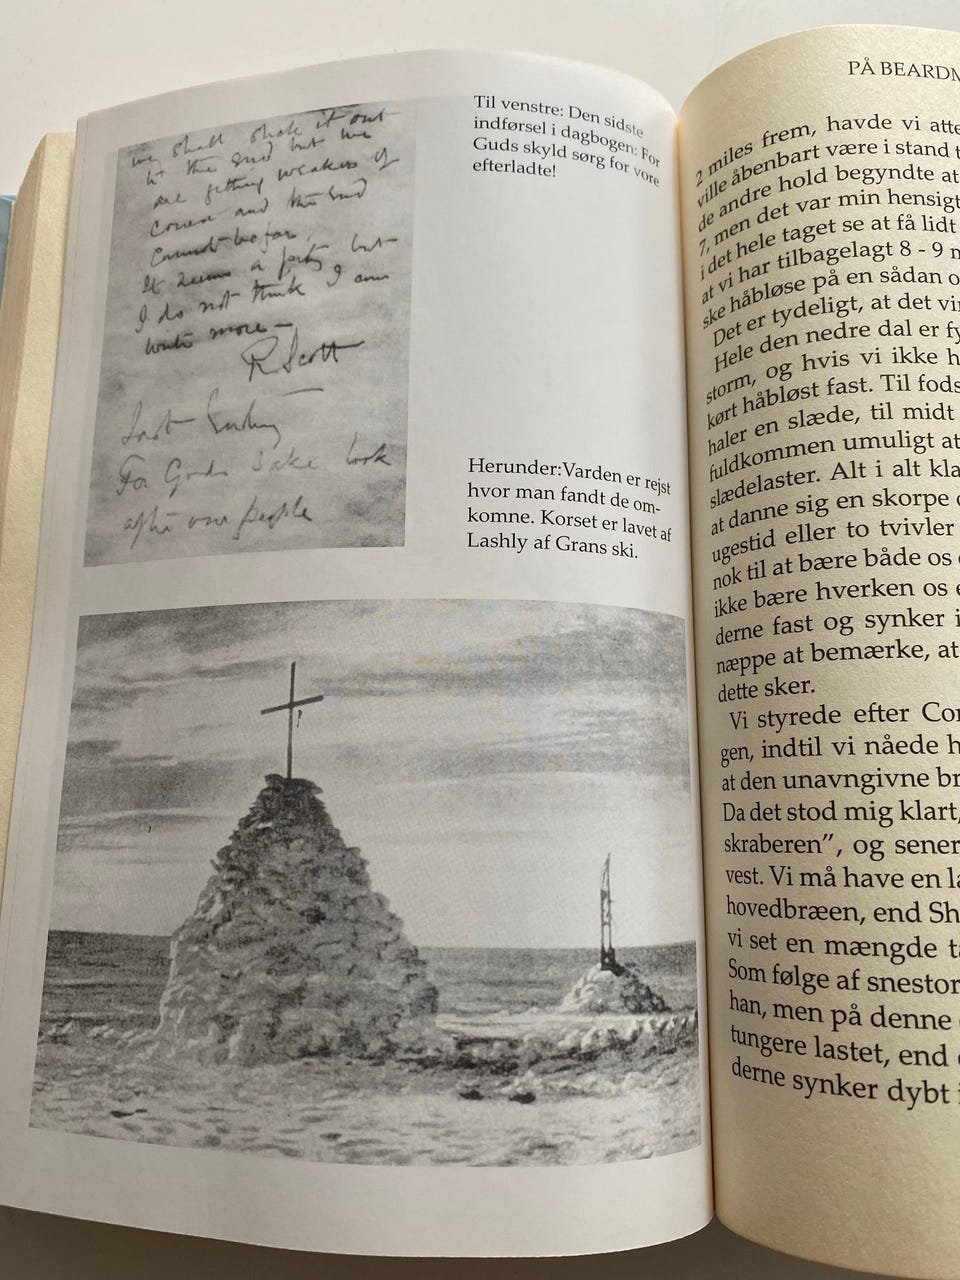 we shall stick it out
to the end but we
are getting weaker of
course and the end
cannot be far.
It seems a pity but
I do not think I can
write more —
R Scott
Last Entry
For Gods sake look
after our people
Til venstre: Den sidste
indførsel i dagbogen: For
Guds skyld sørg for vore
efterladte!
Herunder: Varden er rejst
hvor man fandt de om-
komne. Korset er lavet af
Lashly af Grans ski.
PÅ
2 miles frem, havde vi
ville åbenbart være i stand
de andre hold begyndte at
7, men det var min hensigt
i det hele taget se at få lidt
at vi har tilbagelagt 8 - 9
ske håbløse på en sådan
Det er tydeligt, at det
Hele den nedre dal er
storm, og hvis vi ikke
kørt håbløst fast. Til
haler en slæde, til midt
fuldkommen umuligt at
slædelaster. Alt i alt
at danne sig en skorpe
ugestid eller to tvivler
nok til at bære både os
ikke bære hverken os
derne fast og synker
næppe at bemærke, at
dette sker.
Vi styrede efter
gen, indtil vi nåede
at den unavngivne
Da det stod mig klart,
skraberen”, og
vest. Vi må have en
hovedbræen, end
vi set en mængde
Som følge af
han, men på denne
tungere lastet, end
derne synker dybt